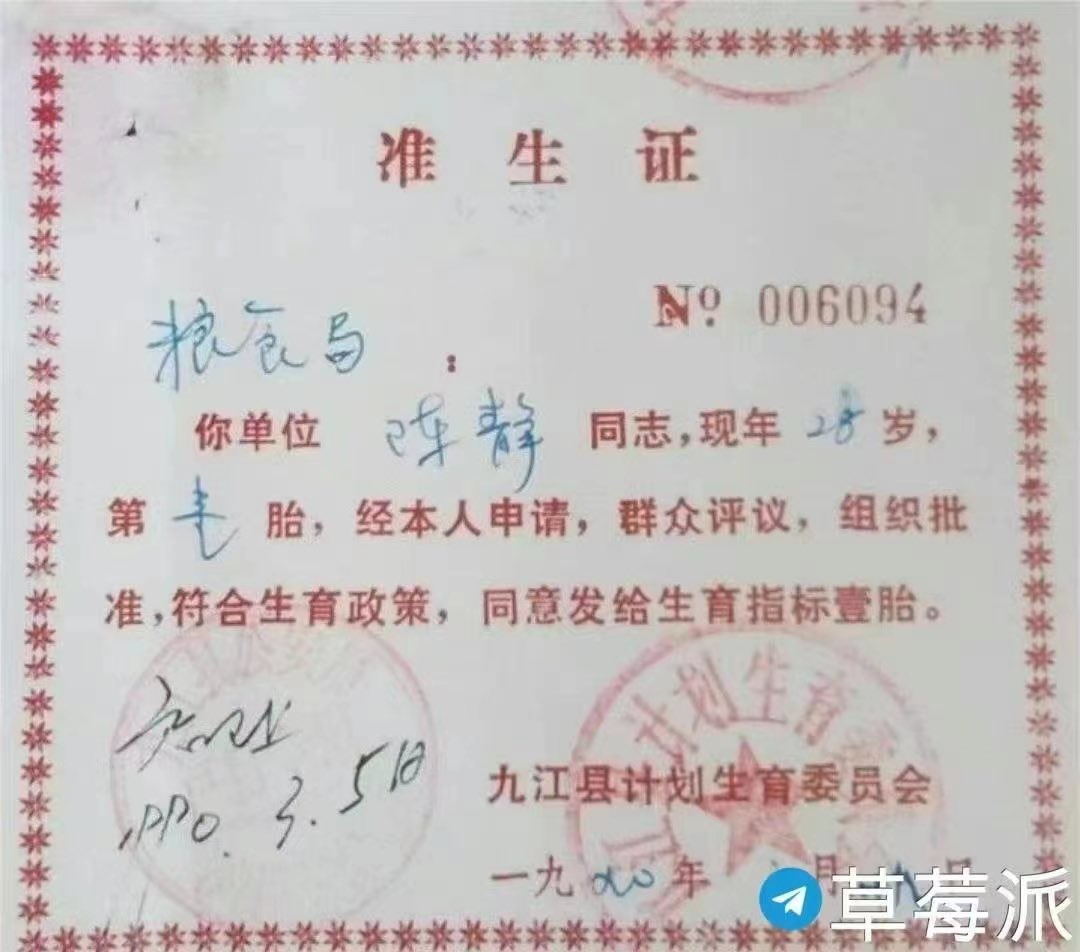 准生证
№ 006094
粮食局：
你单位 陈静 同志，现年 28 岁，
第 壹 胎，经本人申请，群众评议，组织批
准，符合生育政策，同意发给生育指标壹胎。
1990. 3. 5日
计划生育委
九江县计划生育委员会
一九 90 年 月 日
草莓派